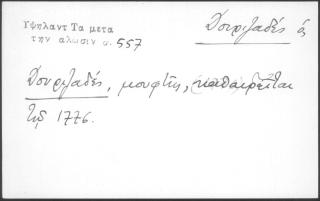 Υψηλαντ Τα μετα
την αλωσιν σ. 557
Δουριζαδές ὁ
Δουριζαδές, μουφτής, καθαιρεῖται
τῷ 1776.